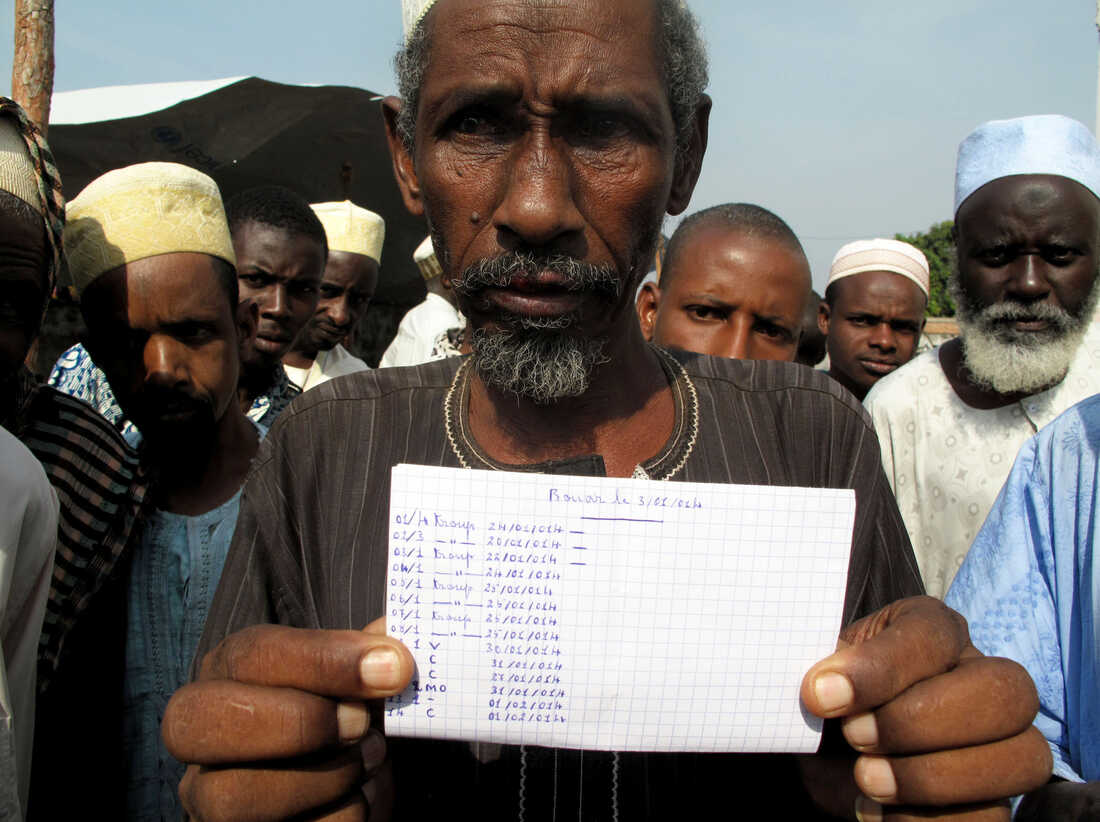 Bouar le 3/01/014
01/4 Kroup 24/01/014 —
02/3 —"— 20/01/014 —
03/1 Kroup 22/01/014 —
04/1 —"— 24/01/014
05/1 Kroup 25/01/014
06/1 —"— 25/01/014
07/1 Kroup 25/01/014
08/1 —"— 25/01/014
1 V 30/01/014
C 31/01/014
C 27/01/014
2 MO 31/01/014
13 1 - 01/02/014
14 C 01/02/014